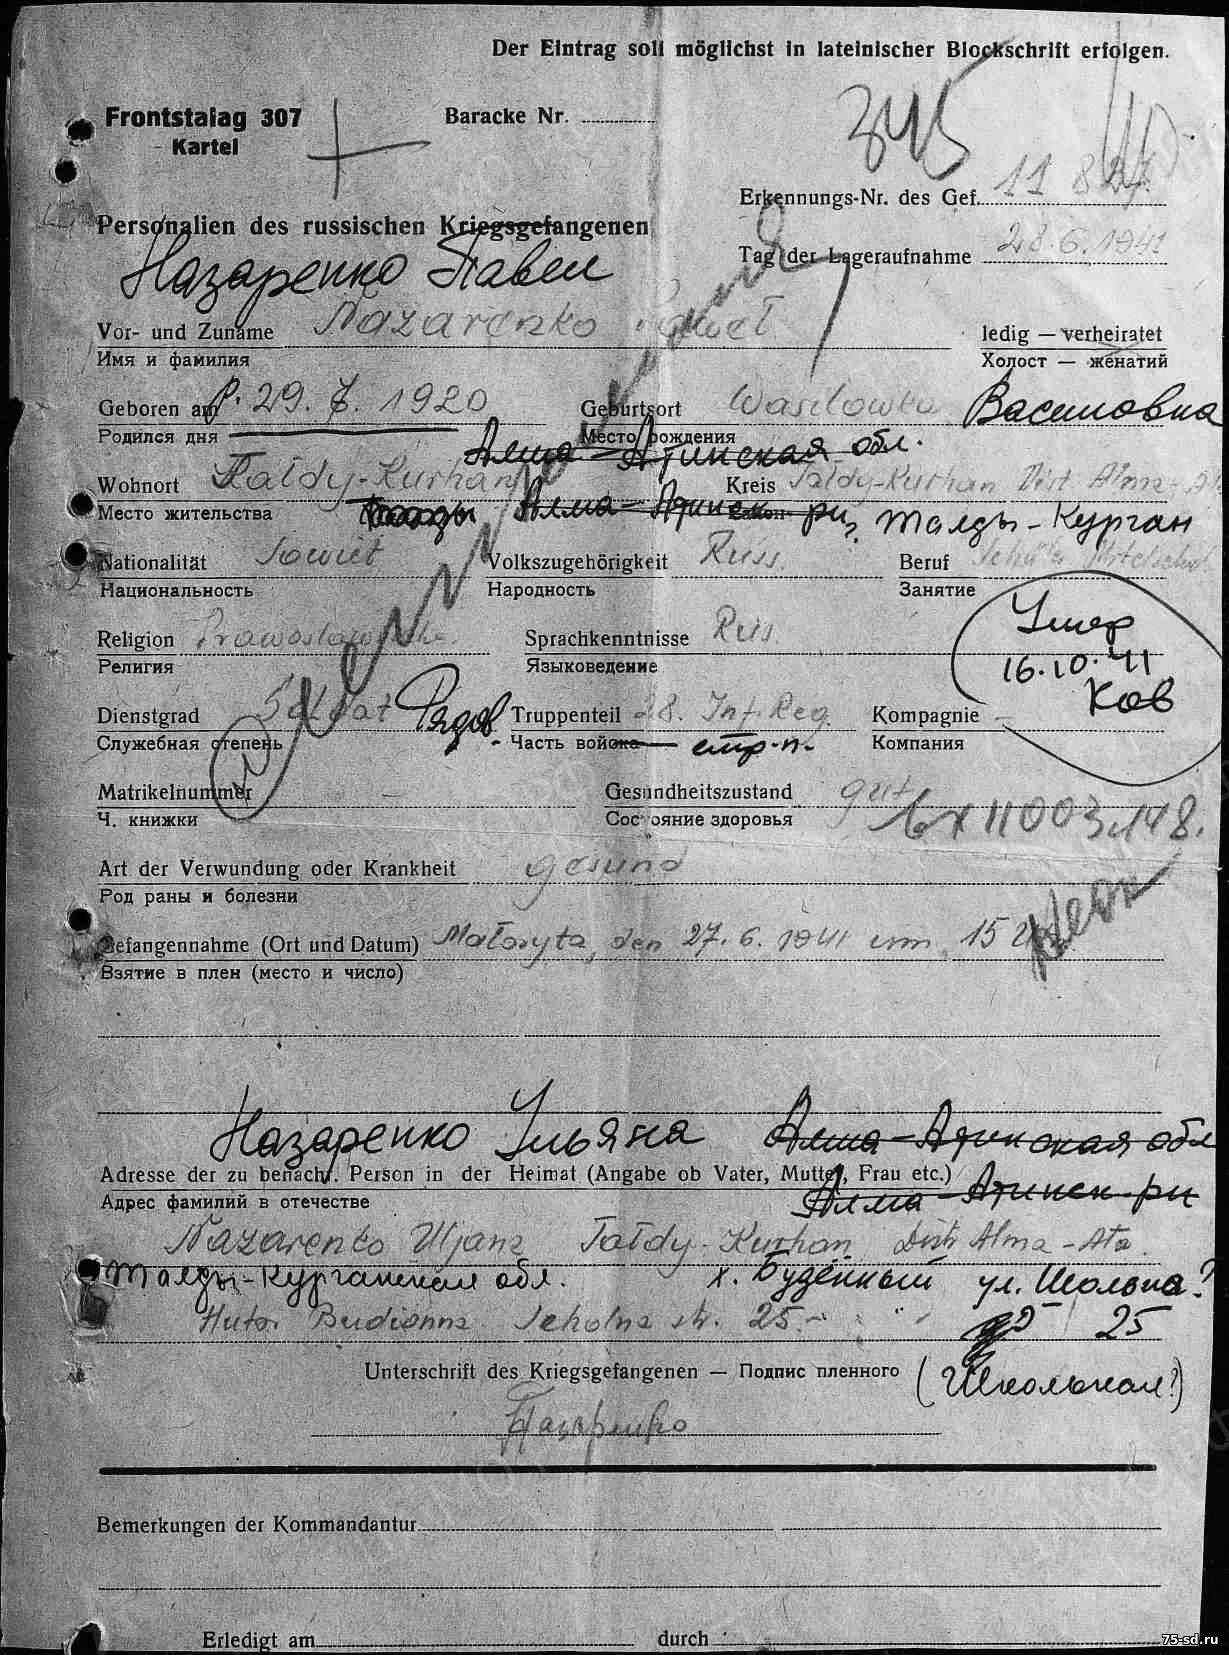 Der Eintrag soll möglichst in lateinischer Blockschrift erfolgen.
Frontstalag 307
Kartei
Baracke Nr.
345
Erkennungs-Nr. des Gef. 11 8
Personalien des russischen Kriegsgefangenen
Tag der Lageraufnahme 28.6.1941
Назаренко Павел
Vor- und Zuname Nazarenko Paweł
ledig — verheiratet
Имя и фамилия
Холост — женатий
Geboren am р. 29. 7. 1920
Geburtsort Wasilowka Василовка
Родился дня
Место рождения
Алма-Атинская обл.
Wohnort Tałdy-Kurhan
Kreis Tałdy-Kurhan Dist Alma-At
Место жительства
Алма-Атинск. рн, Талды-Курган
Nationalität Sowiet
Volkszugehörigkeit Russ.
Beruf
Национальность
Народность
Занятие
Умер
16.10.41
Ков
Religion Prawosławische.
Sprachkenntnisse Rus.
Религия
Языковедение
Dienstgrad Soldat Рядов.
Truppenteil 28. Inf. Reg.
Kompagnie
Служебная степень
Часть войска стр.п.
Компания
Matrikelnummer
Gesundheitszustand gut
Ч. книжки
Состояние здоровья
Art der Verwundung oder Krankheit gesund
Род раны и болезни
Gefangennahme (Ort und Datum) Małoryta, den 27.6.1941 um 15
Взятие в плен (место и число)
Назаренко Ульяна Алма-Атинская обл
Adresse der zu benachr. Person in der Heimat (Angabe ob Vater, Mutter, Frau etc.)
Алма-Атинск. рн
Адрес фамилий в отечестве
Nazarenko Uljana Tałdy-Kurhan Distr Alma-Ata
Талды-Курганская обл. х. Будённый ул. Школьна?
Hutor Budionna Scholna str. 25.
25
Unterschrift des Kriegsgefangenen — Подпис пленного
(Школьная?)
Назаренко
Bemerkungen der Kommandantur
Erledigt am durch
75-sd.ru